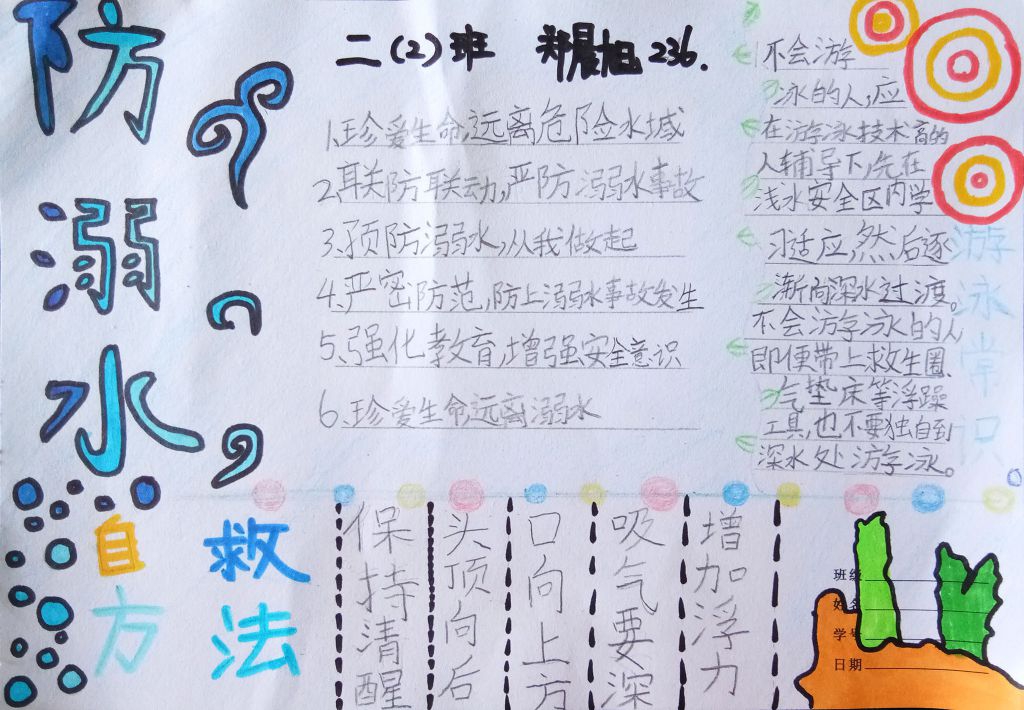 防溺水
二（2）班 郑晨旭 236.
1、珍爱生命,远离危险水域
2、联关防联动,严防溺水事故
3、预防溺水,从我做起
4、严密防范,防上溺水事故发生
5、强化教育,增强安全意识
6、珍爱生命远离溺水
不会游
泳的人,应
在游泳技术高的
人辅导下,先在
浅水安全区内学
习适应,然后逐
渐向深水过渡。
不会游泳的人,
即便带上救生圈、
气垫床等浮躁
工具,也不要独自到
深水处游泳。
游泳常识
自救
方法
保持清醒
头顶向后
口向上方
吸气要深
增加浮力
班级
姓名
学号
日期